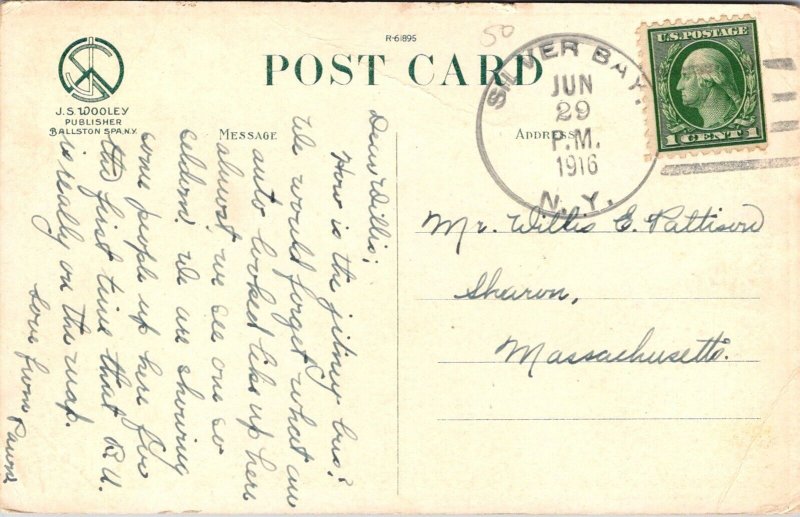 R-61895
50
POST CARD
J.S. WOOLEY
PUBLISHER
BALLSTON SPA, N.Y.
MESSAGE
ADDRESS
SILVER BAY,
JUN
29
P.M.
1916
N.Y.
U.S. POSTAGE
1 CENT 1
Dear Willis;
How is the jitney bus?
We would forget what an
auto looked like up here
almost, we see one so
seldom. We are showing
some people up here for
the first time that B.U.
is really on the map.
Love from
Mr. Willis E. Pattison
Sharon,
Massachusetts.